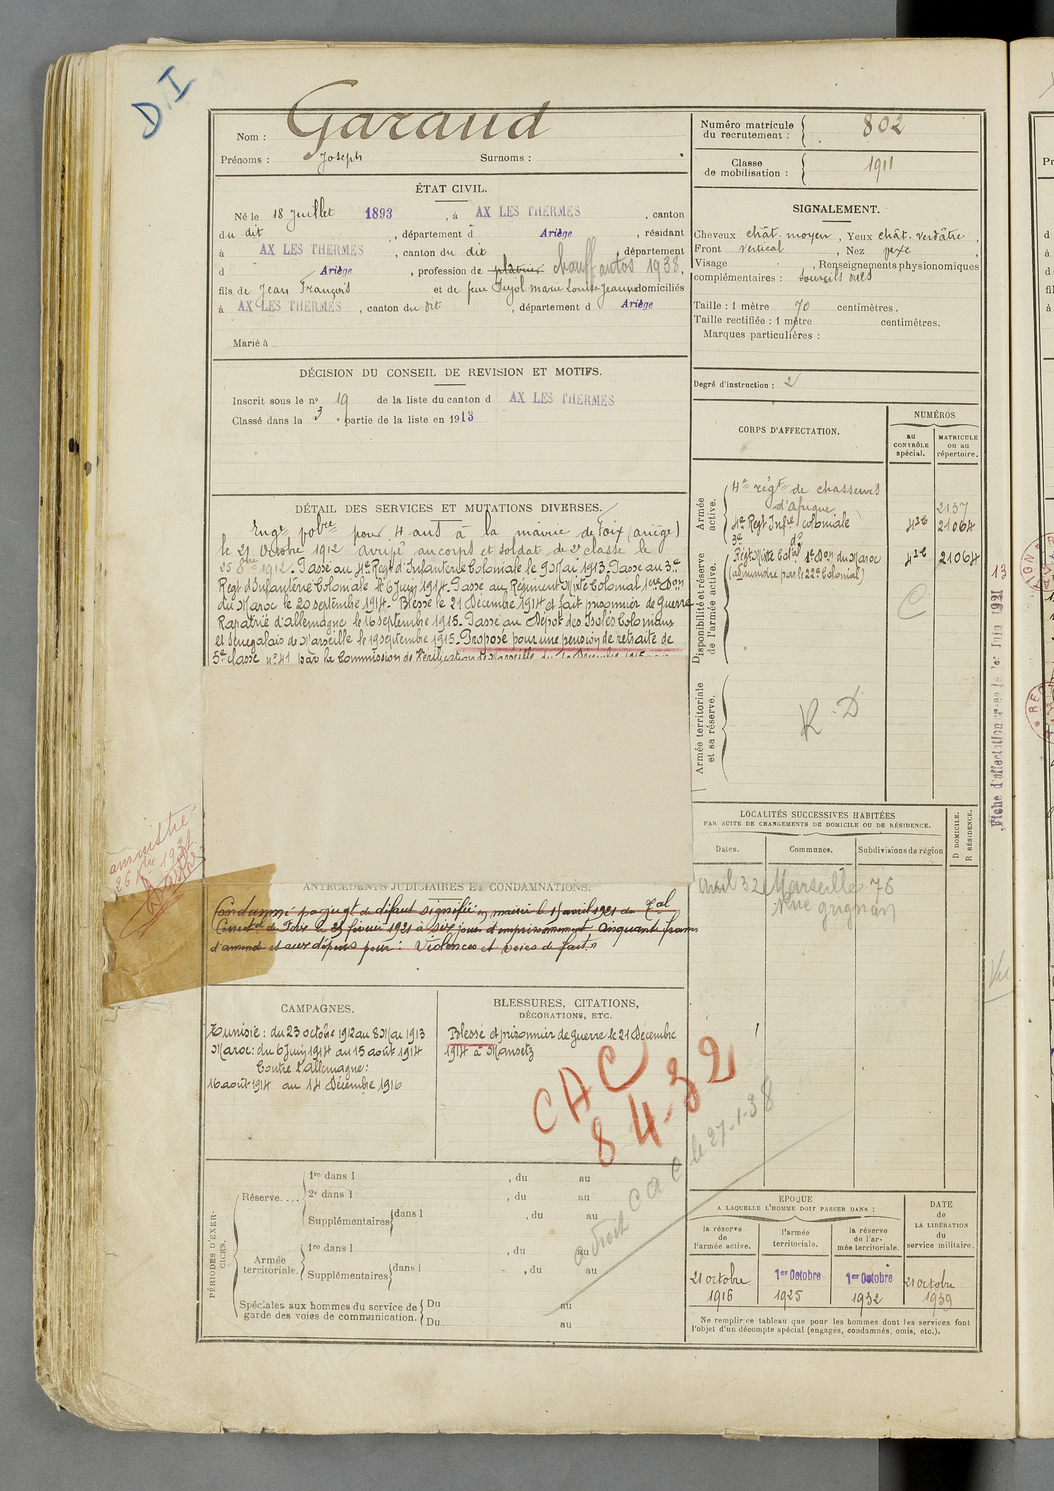 D.I
Nom : Garaud
Prénoms : Joseph Surnoms :
Numéro matricule du recrutement : 802
Classe de mobilisation : 1911
ÉTAT CIVIL.
Né le 18 Juillet 1893, à AX LES THERMES, canton
du dit, département d Ariège, résidant
à AX LES THERMES, canton du dit, département
d Ariège, profession de platrier chauff autos 1938,
fils de Jean François et de feue Pujol Marie Louise Jeanne domiciliés
à AX LES THERMES, canton du dit, département d Ariège
Marié à
SIGNALEMENT.
Cheveux chât. moyen, Yeux chât. verdâtre,
Front vertical, Nez
Visage , Renseignements physionomiques
complémentaires : sourcils
Taille : 1 mètre 70 centimètres.
Taille rectifiée : 1 mètre centimètres.
Marques particulières :
Degré d'instruction : 2
DÉCISION DU CONSEIL DE REVISION ET MOTIFS.
Inscrit sous le n° 19 de la liste du canton d AX LES THERMES
Classé dans la 3e partie de la liste en 1913
DÉTAIL DES SERVICES ET MUTATIONS DIVERSES.
Engé volre pour 4 ans à la mairie de Foix (ariège)
le 21 Octobre 1912 arrivé au corps et soldat de 2e classe le
25 8bre 1912. Passé au 4e Regt d'Infanterie Coloniale le 9 Mai 1913. Passé au 3e
Regt d'Infanterie Coloniale le 6 Juin 1914. Passé au Régiment Mixte Colonial 1ere Don
du Maroc le 20 septembre 1914. Blessé le 21 Décembre 1914 et fait prisonnier de Guerre
Rapatrié d'allemagne le 16 septembre 1915. Passé au Dépôt des Isolés Coloniaux
et Sénégalais de Marseille le 19 septembre 1915. Proposé pour une pension de retraite de
5e classe n° 41 par la Commission de Vérification de Marseille du
CORPS D'AFFECTATION.
NUMÉROS
au CONTRÔLE spécial.
MATRICULE ou au répertoire.
Armée active.
4e régt de chasseurs
d'afrique 2137
4e Regt Infie coloniale 21064
3e do
Disponibilité et réserve de l'armée active.
Régt Mixte Colal 1e Don du Maroc 21064
(administré par le 22e Colonial)
C
Armée territoriale et sa réserve.
R.D
13
Fiche d'affectation Juin 1921
LOCALITÉS SUCCESSIVES HABITÉES
PAR SUITE DE CHANGEMENTS DE DOMICILE OU DE RÉSIDENCE.
Dates. Communes. Subdivisions de région
D DOMICILE. R RÉSIDENCE.
Avril 32 Marseille 76
Rue Grignan
Vu
amnistié
ANTÉCÉDENTS JUDICIAIRES ET CONDAMNATIONS.
Condamné par jugt de défaut signifié en mairie le 1 avril 1921 du Tal
Correctel de Foix le 23 février 1921 à six jours d'emprisonnement Cinquante francs
d'amende et aux dépens pour : Violences et voies de fait."
CAMPAGNES.
Tunisie : du 23 octobre 1912 au 8 Mai 1913
Maroc : du 6 Juin 1914 au 15 août 1914
Contre l'allemagne :
16 août 1914 au 14 Décembre 1916
BLESSURES, CITATIONS,
DÉCORATIONS, ETC.
Blessé et prisonnier de guerre le 21 Décembre
1914 à
CAC
84-32
a droit CAC le 27-1-38
PÉRIODES D'EXERCICES.
Réserve....
1re dans l , du au
2e dans l , du au
Supplémentaires dans l , du au
Armée territoriale.
1re dans l , du au
Supplémentaires dans l , du au
Spéciales aux hommes du service de garde des voies de communication.
Du au
Du au
EPOQUE
A LAQUELLE L'HOMME DOIT PASSER DANS :
la réserve de l'armée active.
l'armée territoriale.
la réserve de l'armée territoriale.
DATE de LA LIBÉRATION du service militaire.
21 octobre 1916
1er Octobre 1925
1er Octobre 1932
21 octobre 1939
Ne remplir ce tableau que pour les hommes dont les services font
l'objet d'un décompte spécial (engagés, condamnés, omis, etc.).